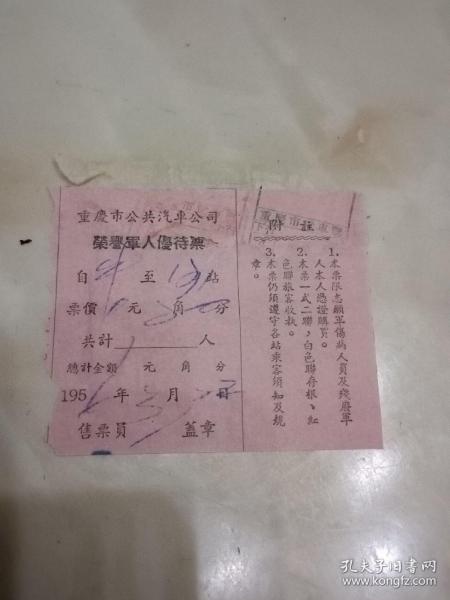 重慶市公共汽車公司
榮譽軍人優待票
自 至 站
票價 元 角 分
共計 人
總計金額 元 角 分
195 年 月 日
售票員 蓋章
附註
1. 本票限志願軍傷病人員及殘廢軍
人本人憑證購買。
2. 本票一式二聯，白色聯存根、紅
色聯旅客收执。
3. 本票仍須遵守各站乘客須知及規
章。
孔夫子旧书网
www.kongfz.com